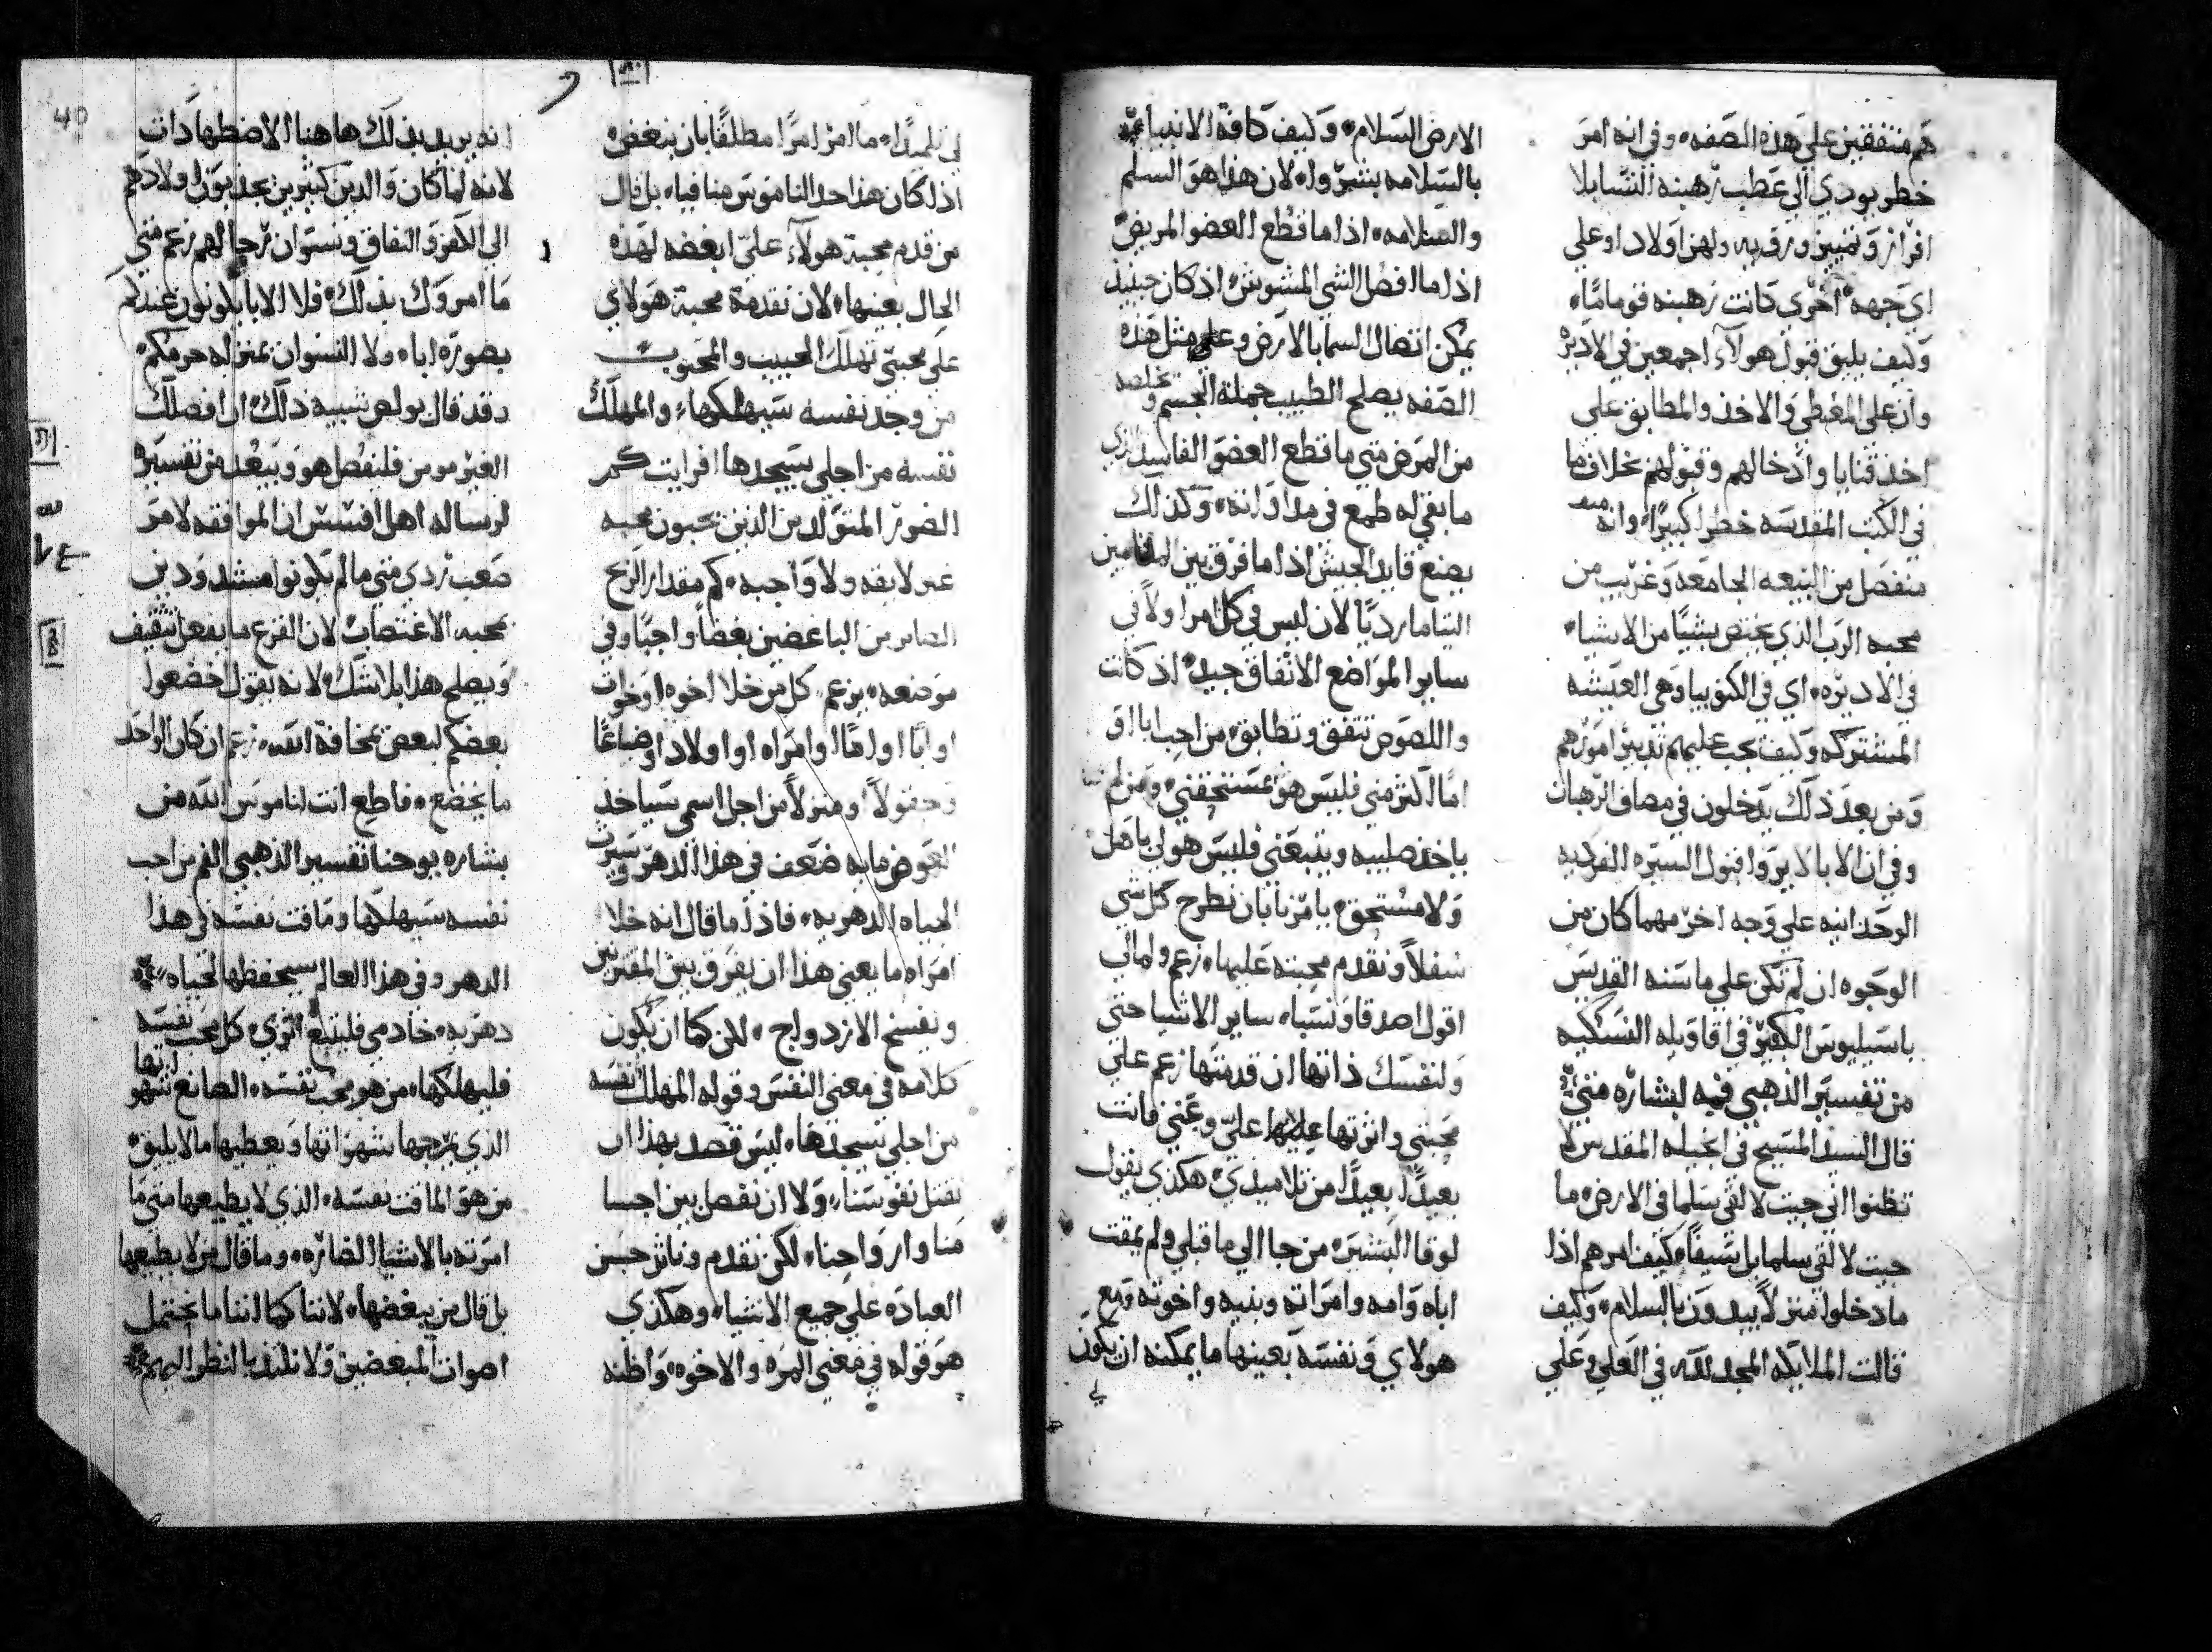 هم متفقين علي هذه الصفه، وفي انه امر
خطر يودي الي عطب رهبنه النسا بلا
افراز وتمييز ورقبه ولهن اولاد او علي
اي جهه اخري كانت رهبنه قوما ما،
وكيف يليق قبول هولاء اجمعين في الاديره
وان علي المعطي والاخذ والمطابق علي
اخذ قنايا وادخالهم وقبولهم بخلاف ما
في الكتب المقدسه خطرا كبيرا، وانه
منفصل من البيعه الجامعه وغريب من
محبه الرب الذي يختص بشيا من الاشيا،
في الاديره، اي في الكنوبيا وهي العيشه
المشتركه وكيف يجب عليهم تدبير امورهم
ومن بعد ذلك يدخلون في مصاف الرهبان
وفي ان الابا لا يروا قبول السيره الفرديه
الوحدانيه علي وجه اخر مهما كان من
الوجوه ان لم تكن علي ما سنه القديس
باسيليوس الكبير في اقاويله النسكيه
من تفسير الذهبي فمه لبشاره متي
قال السيد المسيح في انجيله المقدس لا
تظنوا اني جيت لالقي سلما في الارض، ما
جيت لالقي سلما بل سيفا، كيف امرهم اذا
ما دخلوا منزلا يبدون بالسلام، وكيف
قالت الملايكه المجد لله في العلي وعلي
الارض السلام، وكيف كافة الانبيا
بالسلامه بشروا، لان هذا هو السلم
والسلامه، اذا ما قطع العضو المريض
اذا ما افصل الشي المشوش، اذ كان حينيذ
يمكن اتصال السما بالارض وعلي مثل هذه
الصفه يصلح الطبيب جملة الجسم وتخلصه
من المرض متي ما قطع العضو الفاسد الذي
ما بقي له طمع في مداواته، وكذلك
يصنع قايد الجيش اذا ما فرق بين
التياما رديا لان ليس في كل امرا ولا في
ساير المواضع الاتفاق جيد، اذ كانت
واللصوص تتفق وتطابق، من احب ابا او
اما اكثر مني فليس هو بمستحقني، ومن لم
ياخذ صليبه ويتبعني فليس هو لي باهل
ولا مستحق، يامرنا بان نطرح كل شي
سفلا ونقدم محبته عليها، زعم ولما لي
اقول اصدقا ونسبا، ساير الاشيا حتي
ولنفسك ذاتها ان قدمتها زعم علي
محبتي واثرتها علي وعني فانت
بعيدا بعيدا من تلاميذي، هكذي يقول
لوقا البشير، من جا الي ما قبلي ولم يمقت
اباه وامه وامراته وبنيه واخوته ومع
هولاي ونفسه بعينها ما يمكنه ان يكون
لي
لي تلميذا، ما امر امرا مطلقا بان نبغض
اذ كان هذا حد الناموس منافيا، بل قال
من قدم محبة هولاء علي ابغضه لهذه
الحال بعينها، لان تقدمة محبة هولاي
علي محبتي تهلك الحبيب والمحبوب
من وجد نفسه سيهلكها، والمهلك
نفسه من اجلي سيجدها افرايت كم
الضرر المتولد من الذين يحبون محبه
غير لايقه ولا واجبه، كم مقدار الربح
الصاير من الباغضين بغضا واجبا وفي
موضعه، يزعم كل من خلا اخوه او خوات
او ابا او اما او امراه او اولاد او ضياعا
وحقولا او منزلا من اجل اسمي سياخذ
العوض مايه ضعف في هذا الدهر وسيرث
الحياه الدهريه، فاذا ما قال انه خلا
امراه ما يعني هذا ان يفرق بين المقترنين
ونفسخ الازدواج، لكن كما ان يكون
كلامه في معني النفس وقوله المهلك نفسه
من اجلي سيجدها، ليس قصد بهذا ان
نقتل نفوسنا، ولا ان نفصل بين اجسا
منا وارواحنا، لكن نقدم وناثر حسن
العباده علي جميع الاشيا، وهكذي
هو قوله في معني المره والاخوه، واظنه
انه يريد بذلك هاهنا الاضطهادات
لانه لما كان والدين كثيرين يجذبون اولادهم
الي الكفر والنفاق ونسوان رجالهم زعم متي
ما امروك بذلك، فلا الابا يكونون عندكم
بصورة ابا، ولا النسوان بمنزله حرمكم،
وقد قال بولص شبيه ذلك، ان افصلك
الغير مومن فلنفصل هو ويبعد من تفسيره
لرساله اهل افسس ان الموافقه لامر
صعب ردي متي ما لم يكونوا منشدودين
بمحبه الاغتصاب لان الفزع ما يفعل تثقيف
ويصلح هذا بلا شك، لانه يقول اخضعوا
بعضكم لبعض بمخافة الله، زعم ان كان الواحد
ما يخضع، فاطع انت لناموس الله من
بشاره يوحنا تفسير الذهبي الفم من احب
نفسه سيهلكها وماقت نفسه في هذا
الدهر وفي هذا العالم سيحفظها لحياه
دهريه، خادمي فليتبع اثري، كل محب نفسه
فليهلكها، من هو محب نفسه، الصانع شهو
اتها
الذي يرجها شهواتها ويعطيها ما لا يليق
من هو الماقت نفسه، الذي لا يطيعها متي ما
امرته بالاشيا الضاره، وما قال من لا يطيعها
بل قال من يبغضها، لاننا كما اننا ما نحتمل
اصوات المبغضين ولا نلتذ بالنظر اليهم
40